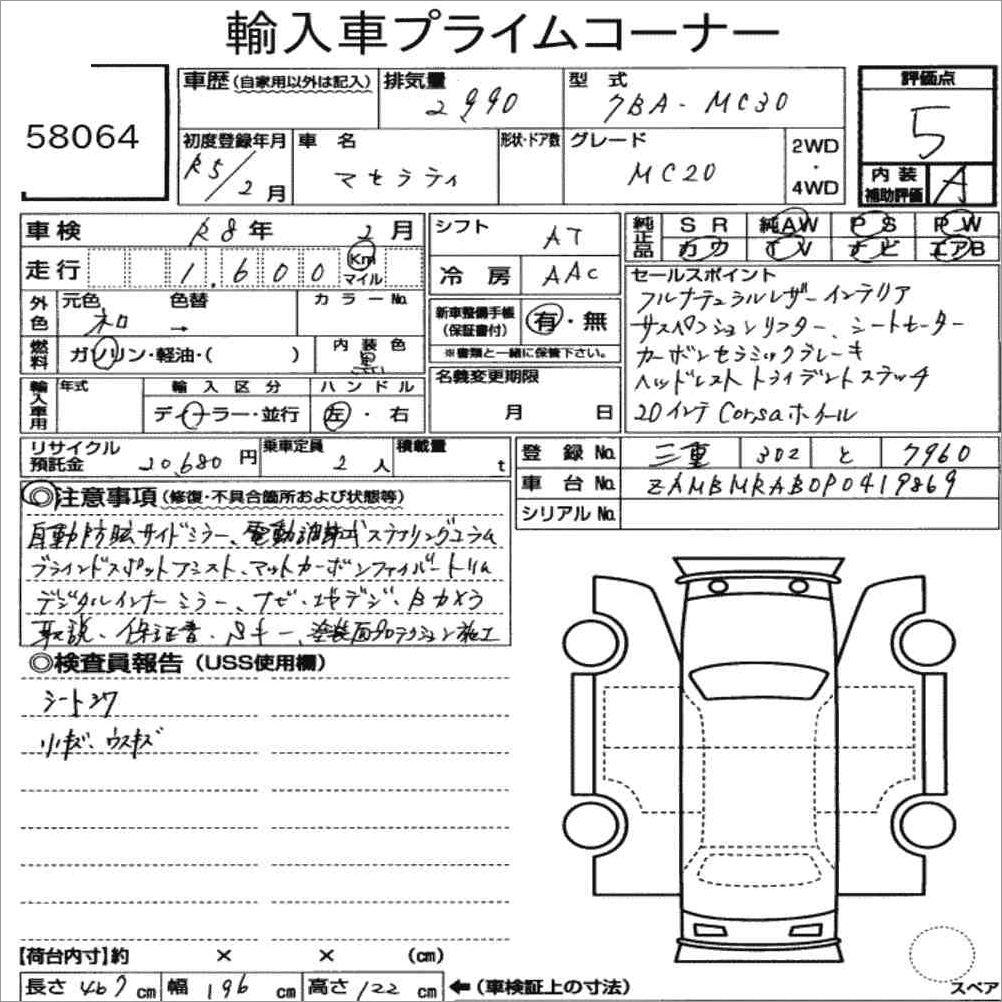 輸入車プライムコーナー
58064
車歴(自家用以外は記入) 排気量 2990 型式 7BA-MC30 評価点 5
初度登録年月 R5/2月 車名 マセラティ 形状・ドア数 グレード MC20 2WD・4WD 内装補助評価 A
車検 R8年 2月 シフト AT 純正品 SR 純AW PS PW
走行 1,600 Km マイル 冷房 AAC カワ TV ナビ エアB
外色 元色 色替 → カラーNo.
新車整備手帳(保証書付) 有・無
※書類と一緒に保管下さい。
燃料 ガソリン・軽油・( ) 内装色 黒
セールスポイント
フルナチュラルレザーインテリア
サスペンションリフター、シートヒーター
カーボンセラミックブレーキ
ヘッドレストトライデントステッチ
20インチCorsaホイール
輸入車用 年式 輸入区分 ディーラー・並行 ハンドル 左・右
名義変更期限 月 日
リサイクル預託金 20,680円 乗車定員 2人 積載量 t
登録No. 三重 302 と 7960
車台No. ZAMBMRAB0P0419869
シリアルNo.
◎注意事項(修復・不具合箇所および状態等)
自動防眩サイドミラー、電動調整式ステアリングコラム
ブラインドスポットアシスト、マットカーボンファイバートリム
デジタルインナーミラー、ナビ・地デジ・Bカメラ
取説、保証書、Sキー、塗装面プロテクション施工
◎検査員報告(USS使用欄)
シートシワ
小キズ、ウスキズ
【荷台内寸】約 × × (cm)
長さ 467 cm 幅 196 cm 高さ 122 cm ←(車検証上の寸法)
スペア